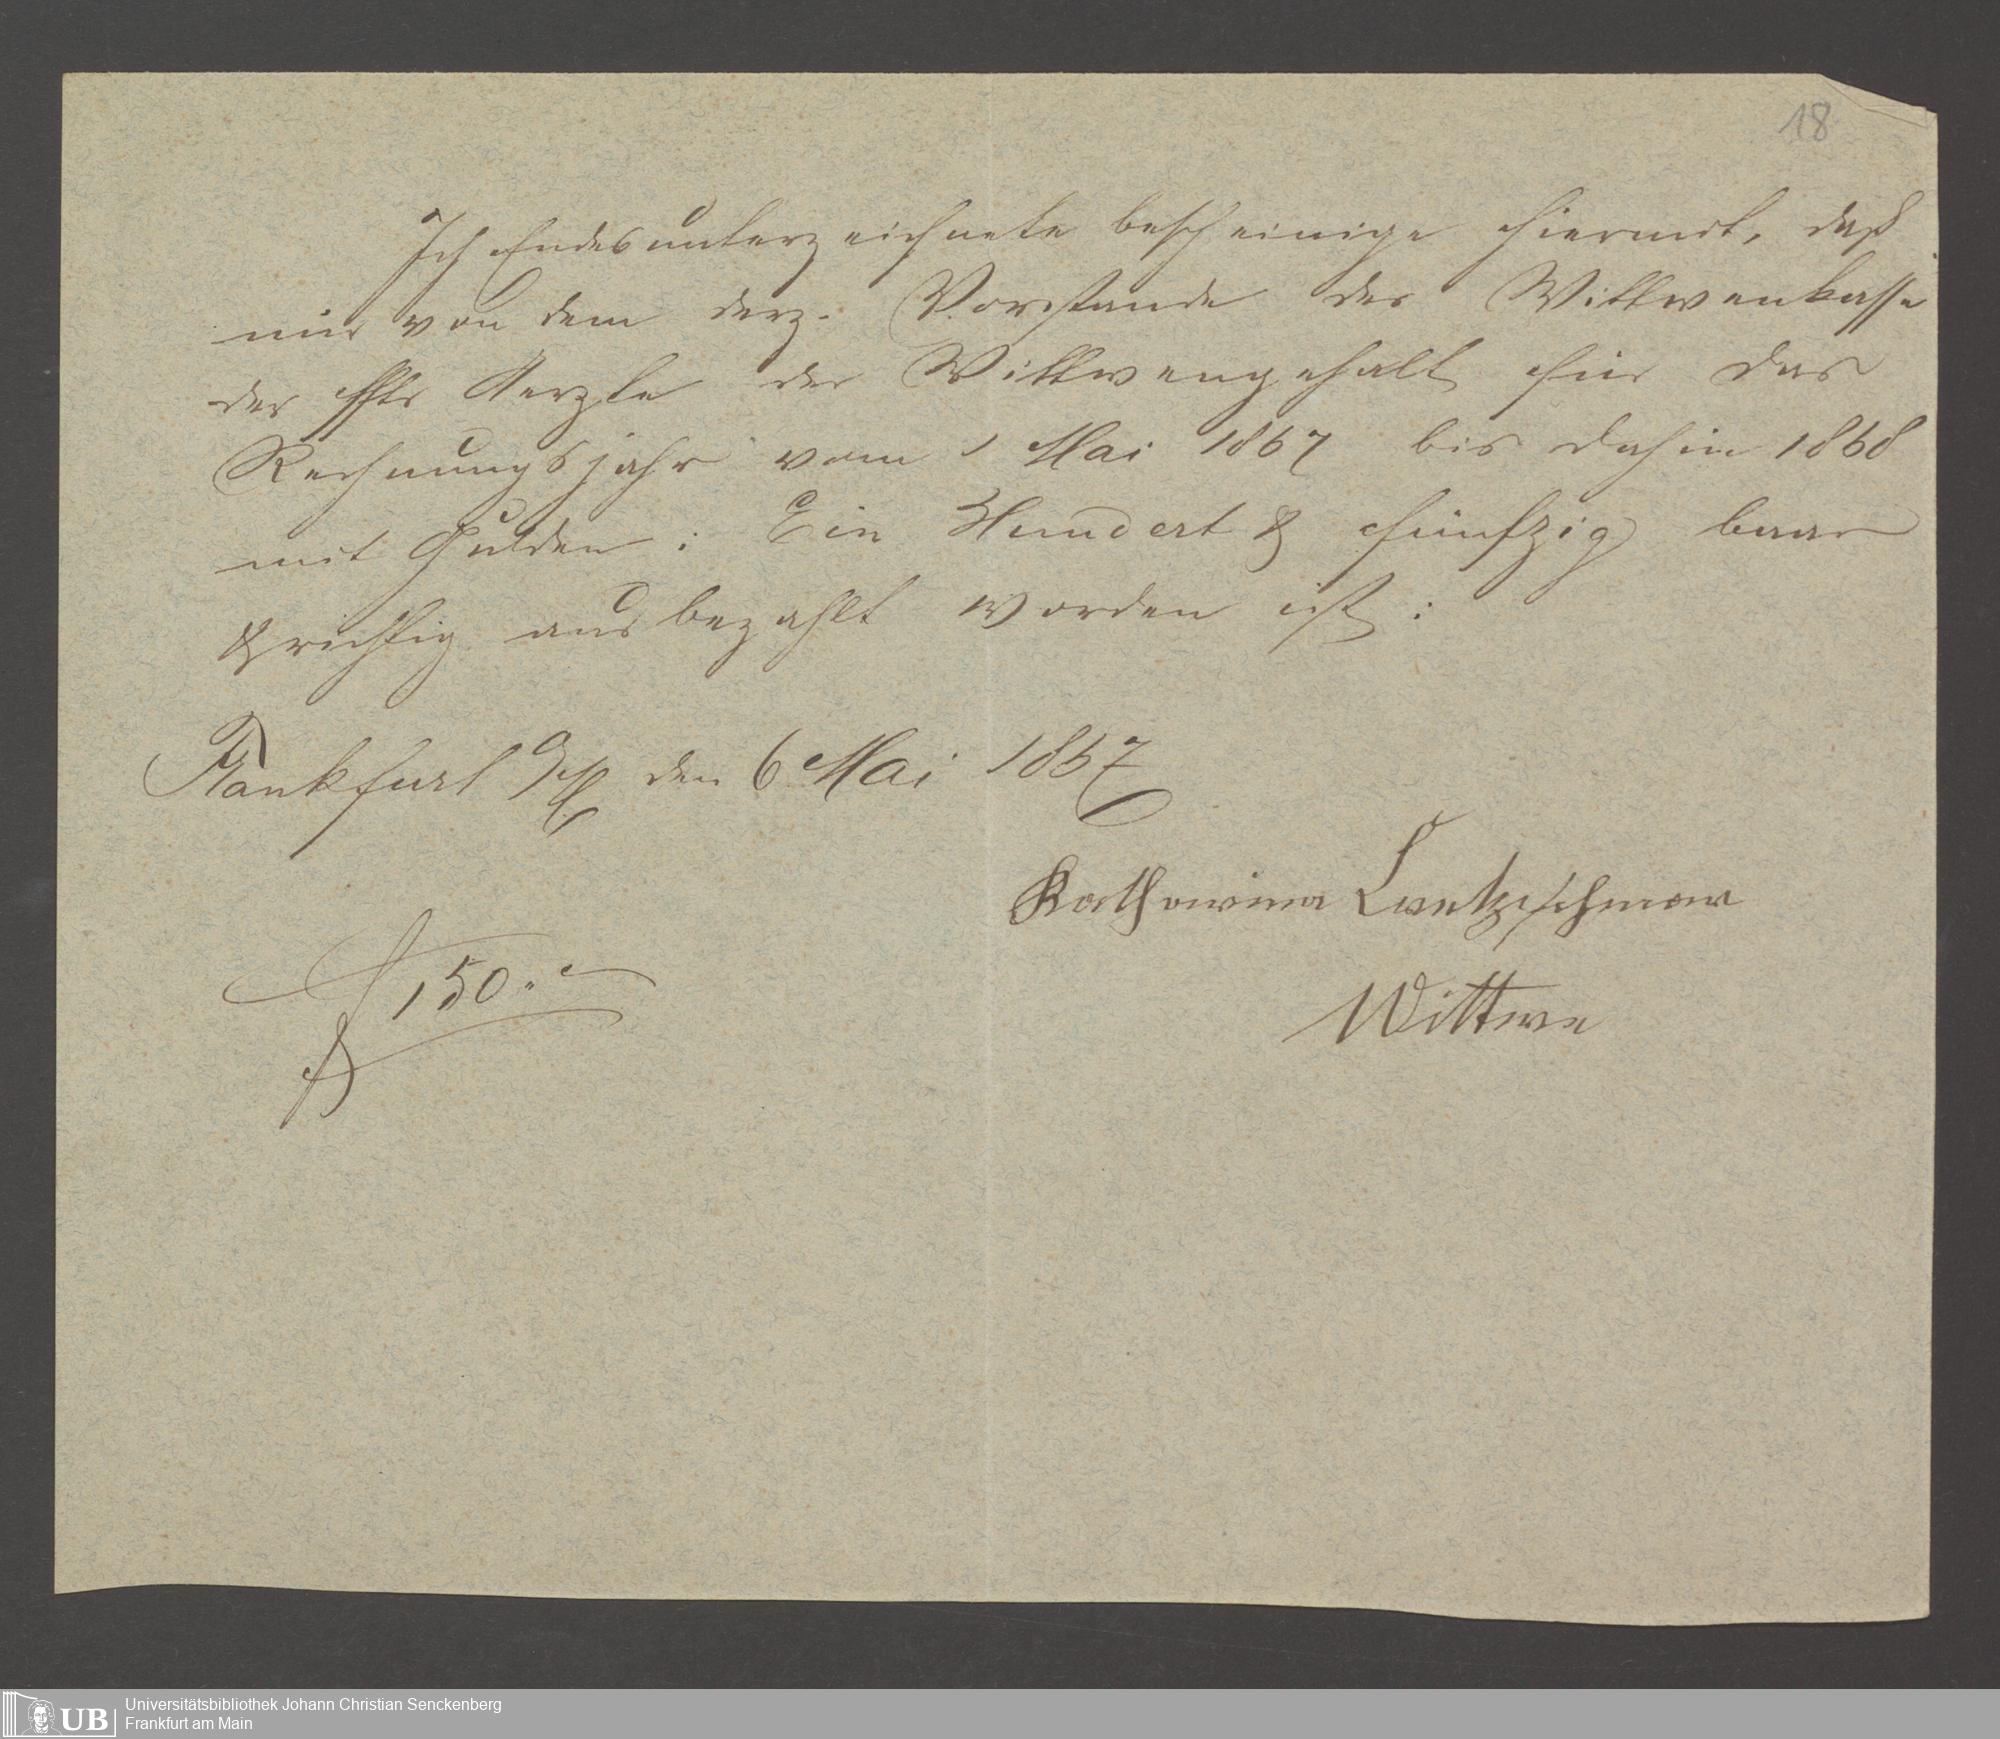 18
Ich Endesunterzeichnete bescheinige hiermit, daß
mir von dem derz. Vorstande der Wittwenkasse
der Aerzte der Wittwengehalt für das
Rechnungsjahr vom 1 Mai 1867 bis dahin 1868
mit Gulden: Ein Hundert & fünfzig baar
& richtig ausbezahlt worden ist:
Frankfurt a/M den 6 Mai 1867
Katharina
150.
Wittwe
UB Universitätsbibliothek Johann Christian Senckenberg
Frankfurt am Main